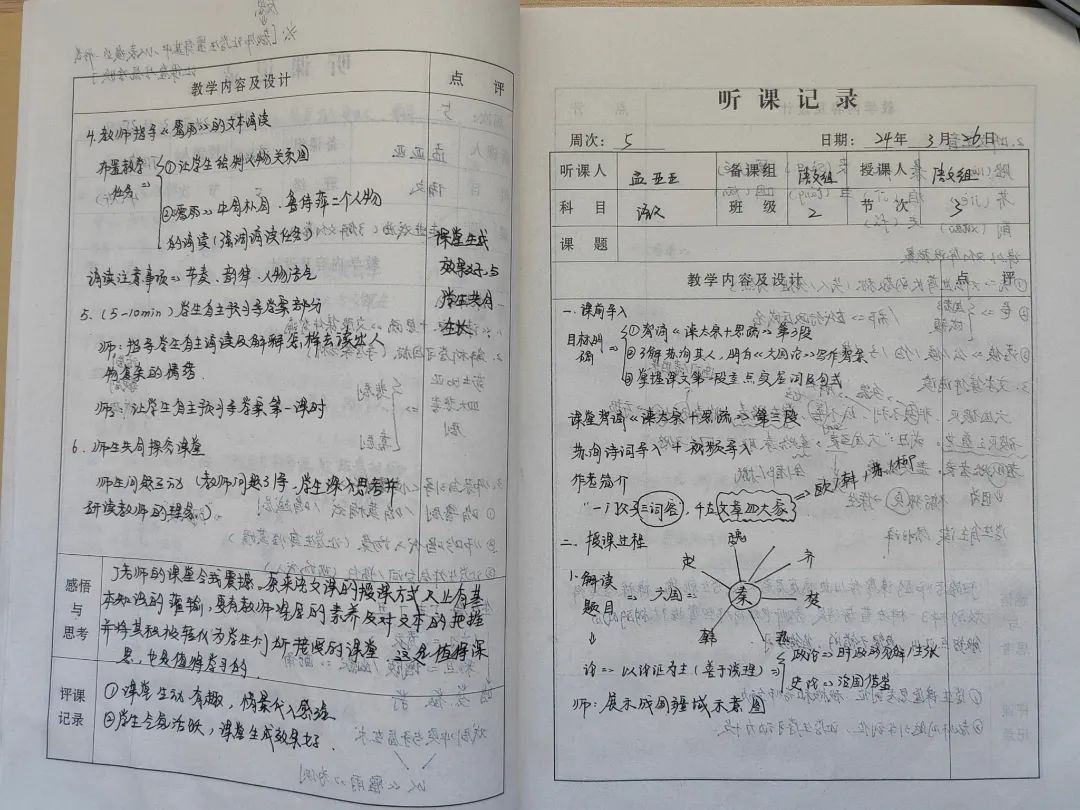 教学内容及设计
点 评
4.教师指导《雷雨》的文本诵读
布置教学
任务
①让学生绘制人物关系图
②《雷雨》中周朴园、鲁侍萍二个人物
的诵读(强调诵读任务)
诵读注意事项 节奏、韵律、人物语气
5.(5-10min)学生自主预习导学案部分
师:指导学生自主诵读及解释怎样去读出人
物复杂的情绪.
师:让学生自主预习导学案第一课时
6.师生共同探究课堂
师生问题互动(教师问题引导,学生深入思考并
研读教师的理念)
课堂生成
效果好,与
学生共同
成长.
感悟
与
思考
丁老师的课堂令我震撼。原来语文课的授课方式
不止有基
本知识的灌输,更有教师课层的素养及对文本的把握
并将其积极转化为学生分析
的课堂
这是值得深
思,也是值得学习的.
评课
记录
①课堂生动有趣,情景代入感强
②学生参与活跃,课堂生成效果好.
听 课 记 录
周次: 5
日期: 24年 3月 26日
听课人 孟亚亚 备课组 语文组 授课人 语文组
科 目 语文 班 级 2 节 次 3
课 题
教学内容及设计
点 评
一.课前导入
目标明
确
①背诵《谏太宗十思疏》第3段
②了解苏洵其人,明白《六国论》写作背景
③掌握课文第一段重点实层词及句式
课堂背诵《谏太宗十思疏》第三段
苏洵诗词导入+视频导入
作者简介
"一门父子三词客,千古文章四大家
欧/韩+苏/柳
二、授课过程
1.解读
题目
六国
秦
魏
齐
楚
燕
韩
赵
论 以论证为主(善于说理)
政论 时政的分解/主张
史论 治国借鉴
师:展示战国疆域示意图